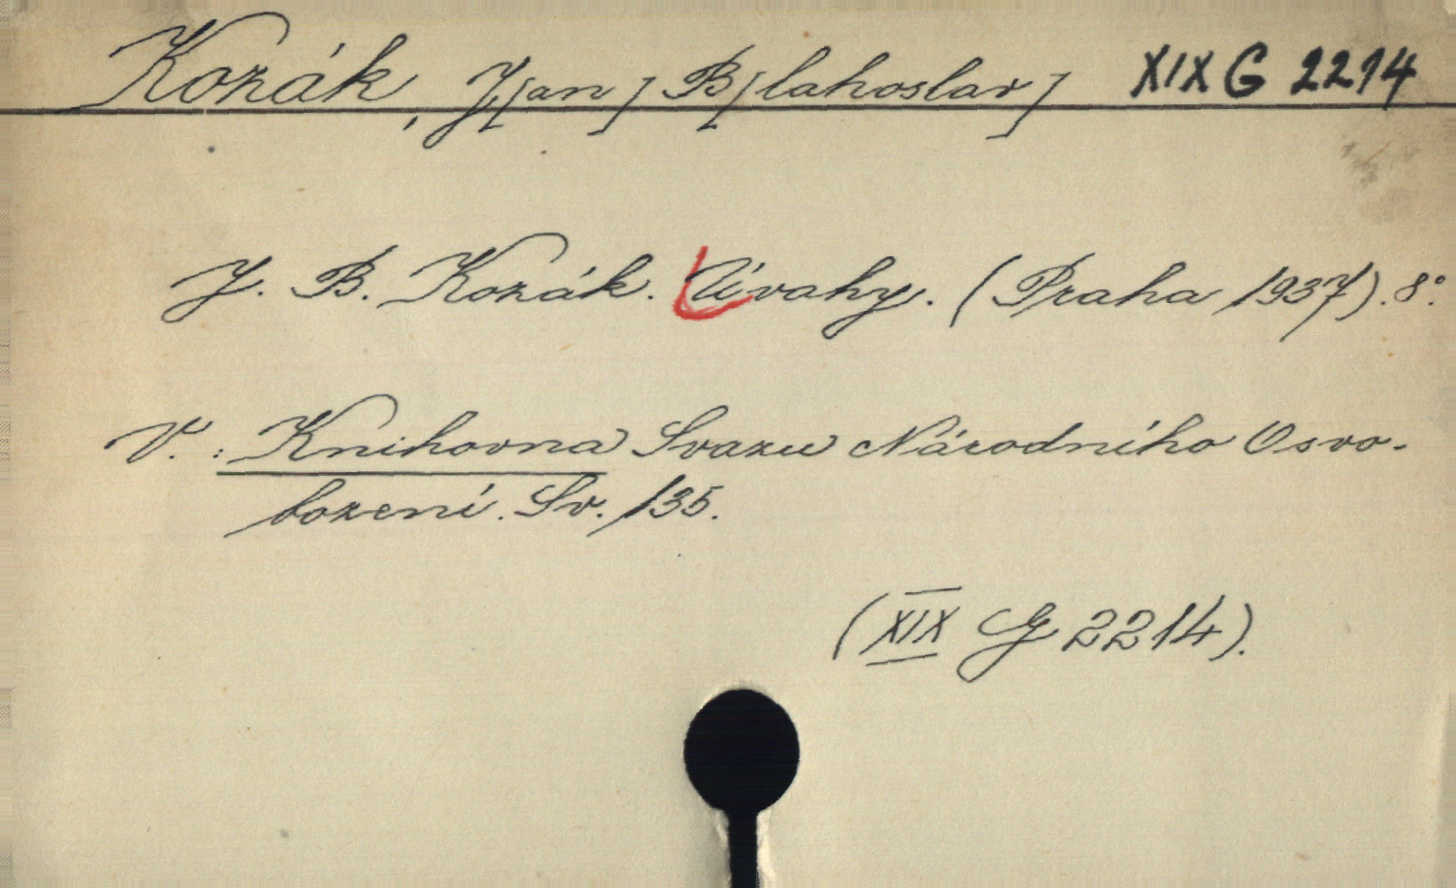 Kozák, J[an] B[lahoslav] XIX G 2214
J. B. Kozák. Úvahy. (Praha 1937). 8°.
V.: Knihovna Svazu Národního Osvo-
bození. Sv. 135.
(XIX G 2214).